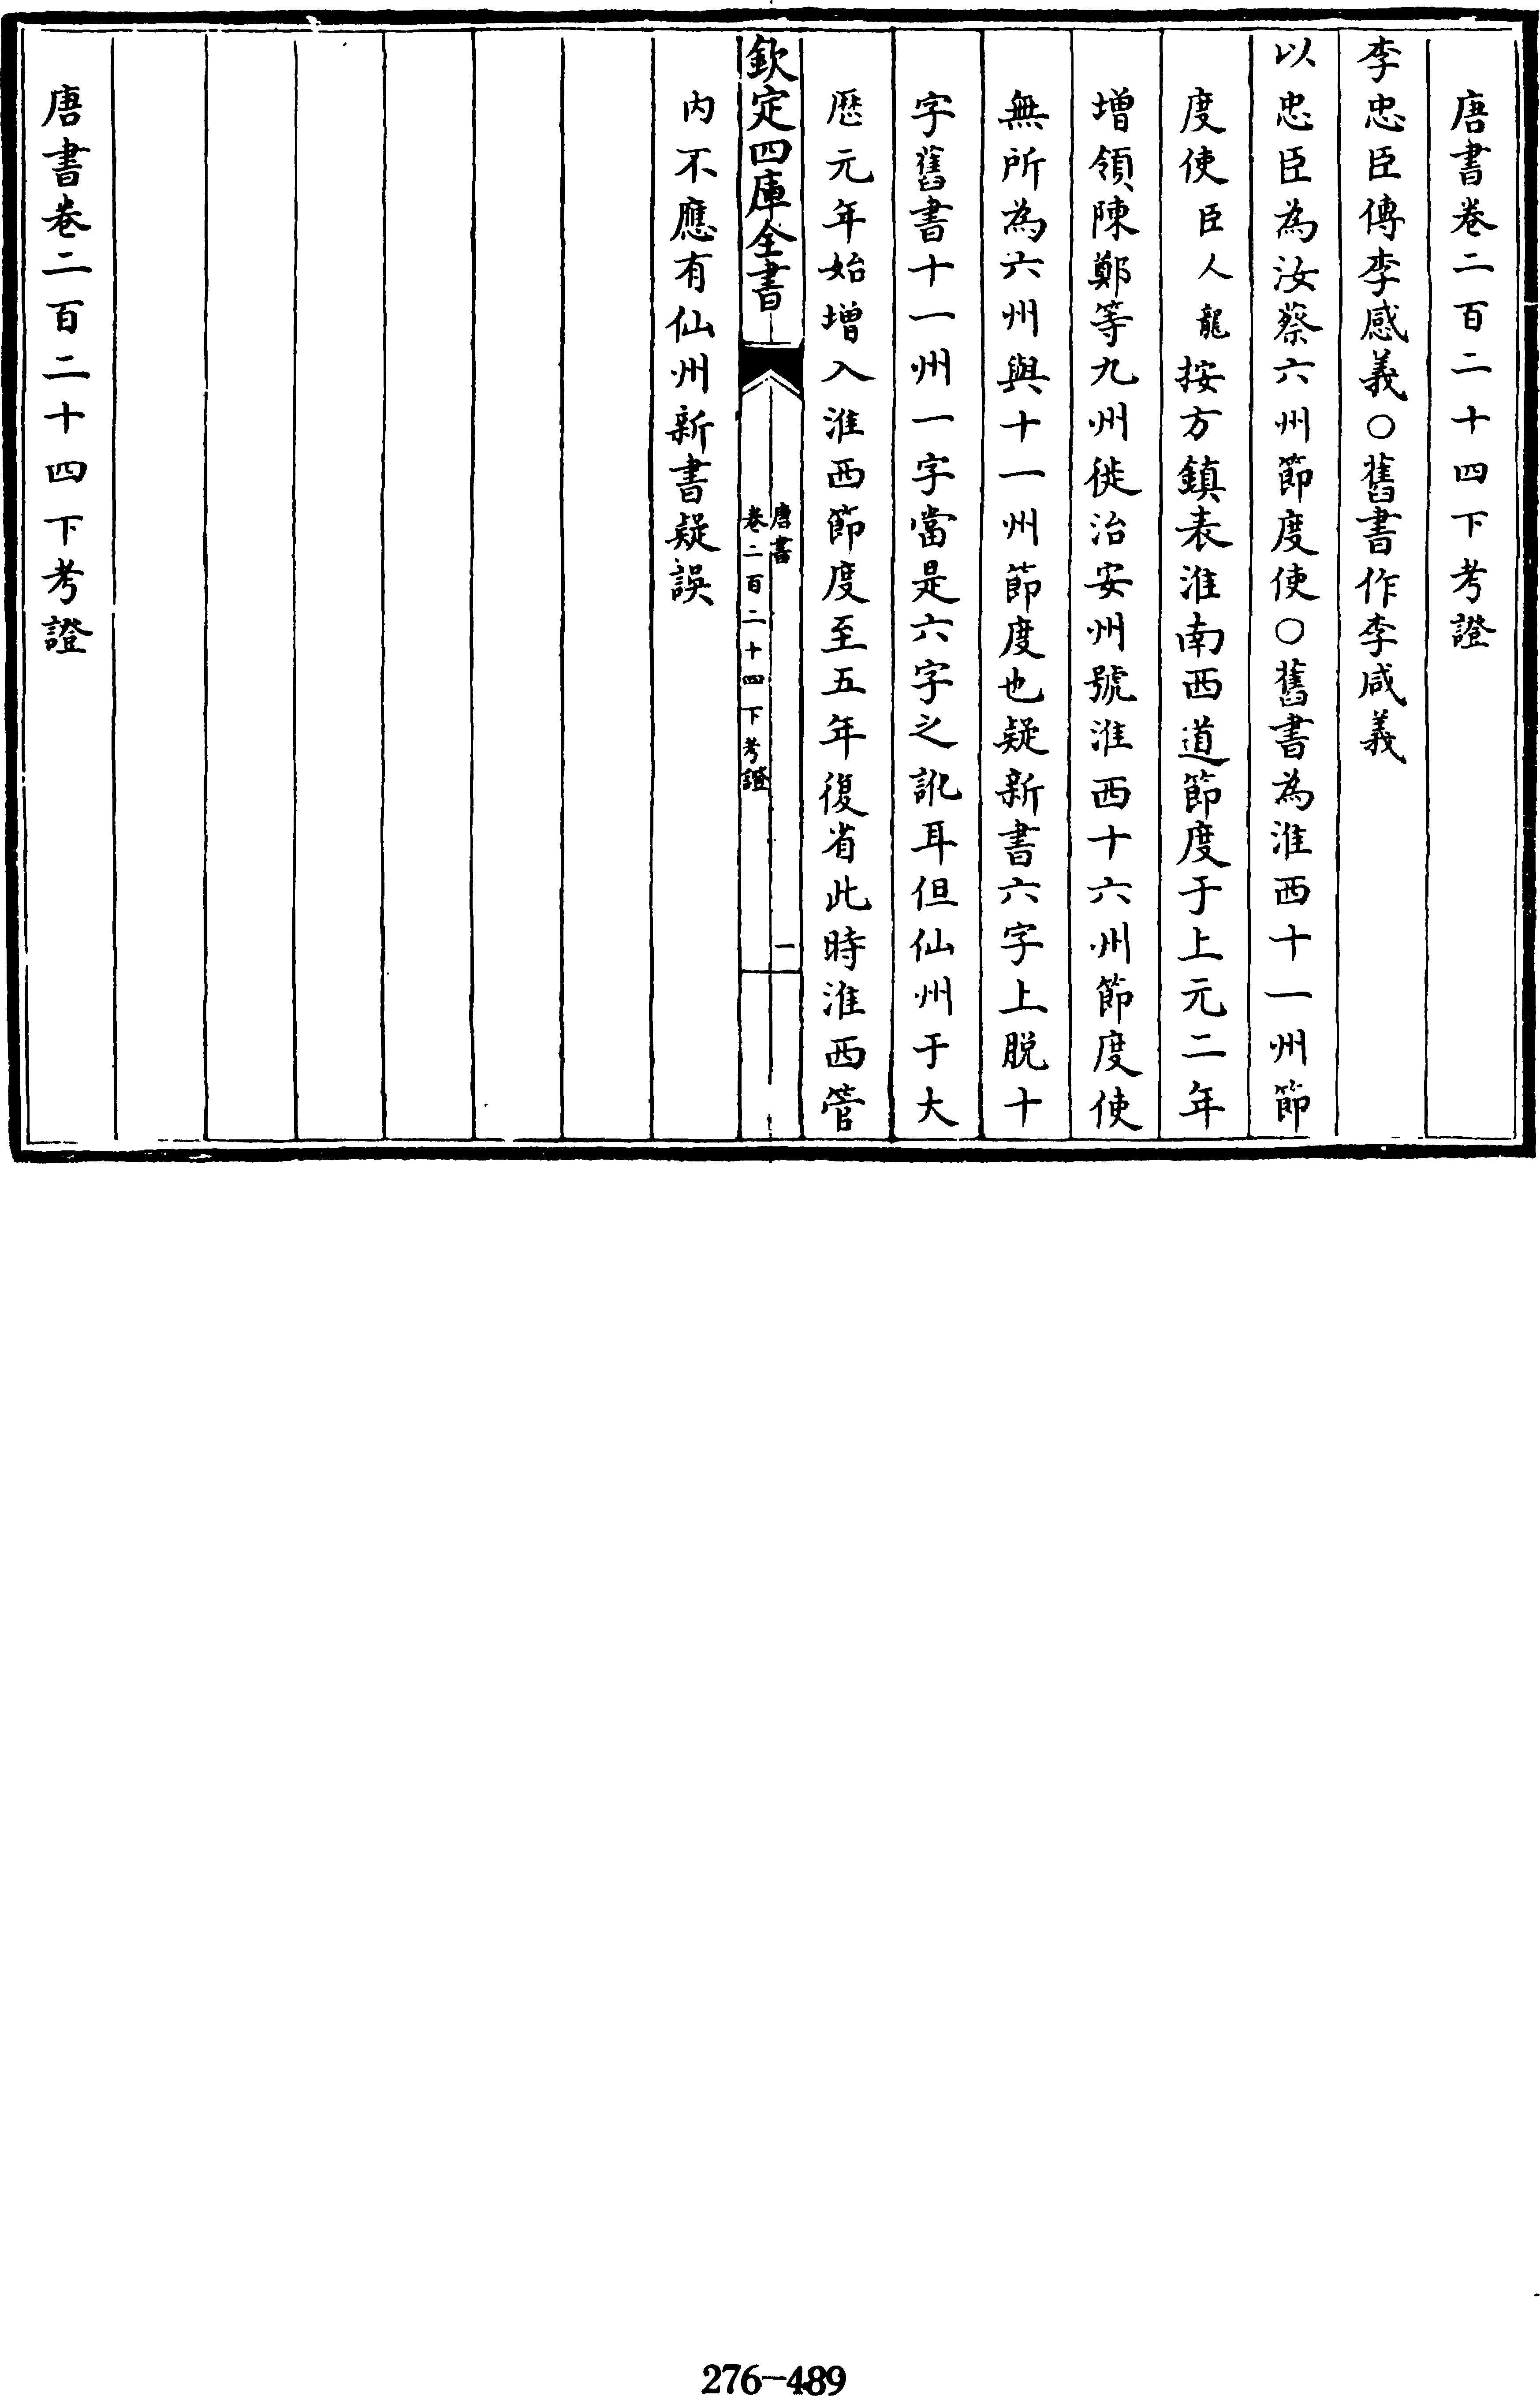 唐書卷二百二十四下考證
李忠臣傳李感義○舊書作李咸義
以忠臣為汝蔡六州節度使○舊書為淮西十一州節
度使臣人龍按方鎮表淮南西道節度于上元二年
增領陳鄭等九州徙治安州號淮西十六州節度使
無所為六州與十一州節度也疑新書六字上脱十
字舊書十一州一字當是六字之訛耳但仙州于大
歴元年始增入淮西節度至五年復省此時淮西管
欽定四庫全書
唐書
卷二百二十四下考證
一
内不應有仙州新書疑誤
唐書卷二百二十四下考證
276-489